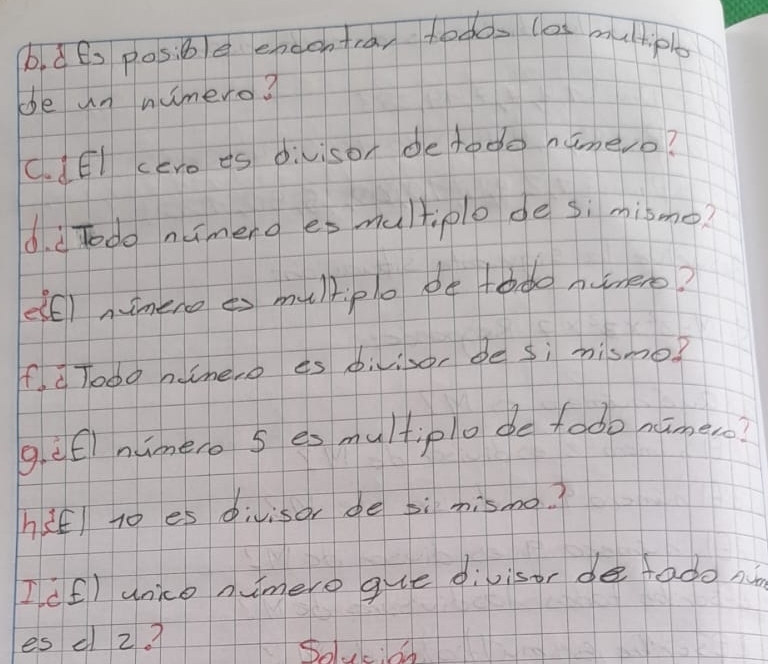 b. ¿Es posible encontrar todos los multiplo
de un número?
C. ¿El cero es divisor de todo número?
d. ¿Todo número es multiplo de si mismo?
e ¿El número es multiplo de todo número?
f. ¿Todo número es divisor de si mismo?
g. ¿El número 5 es multiplo de todo número?
h ¿El 10 es divisor de si mismo?
I. ¿El unico número que divisor de todo núm
es el 2?
Solución